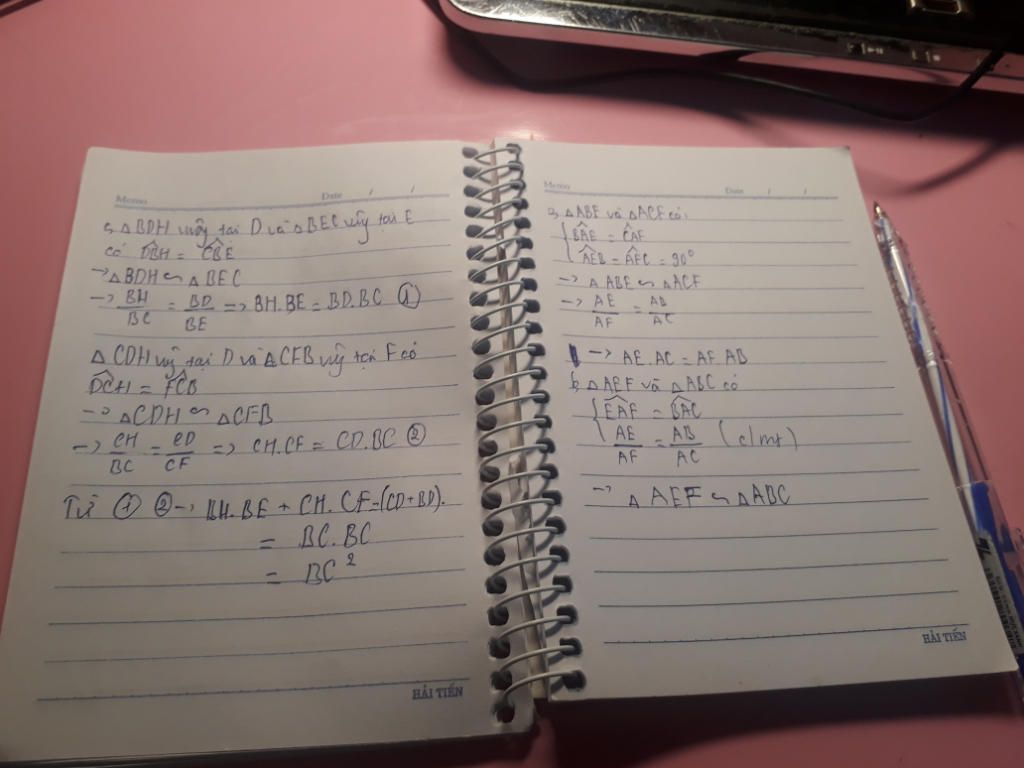 Memo Date / /
c, △BDH vuông tại D và △BEC vuông tại E
có D̂BH = ĈBE
→ △BDH ∽ △BEC
→ BH/BC = BD/BE => BH.BE = BD.BC ①
△CDH vuông tại D và △CFB vuông tại F có
D̂CH = F̂CB
→ △CDH ∽ △CFB
→ CH/BC = CD/CF => CH.CF = CD.BC ②
Từ ① ② → BH.BE + CH.CF = (CD+BD).
= BC.BC
= BC²
HẢI TIẾN
Memo Date / /
a, △ABE và △ACF có:
B̂AE = ĈAF
ÂEB = ÂFC = 90°
→ △ABE ∽ △ACF
→ AE/AF = AB/AC
→ AE.AC = AF.AB
b, △AEF và △ABC có
ÊAF = B̂AC
AE/AF = AB/AC (c/mt)
→ △AEF ∽ △ABC
HẢI TIẾN